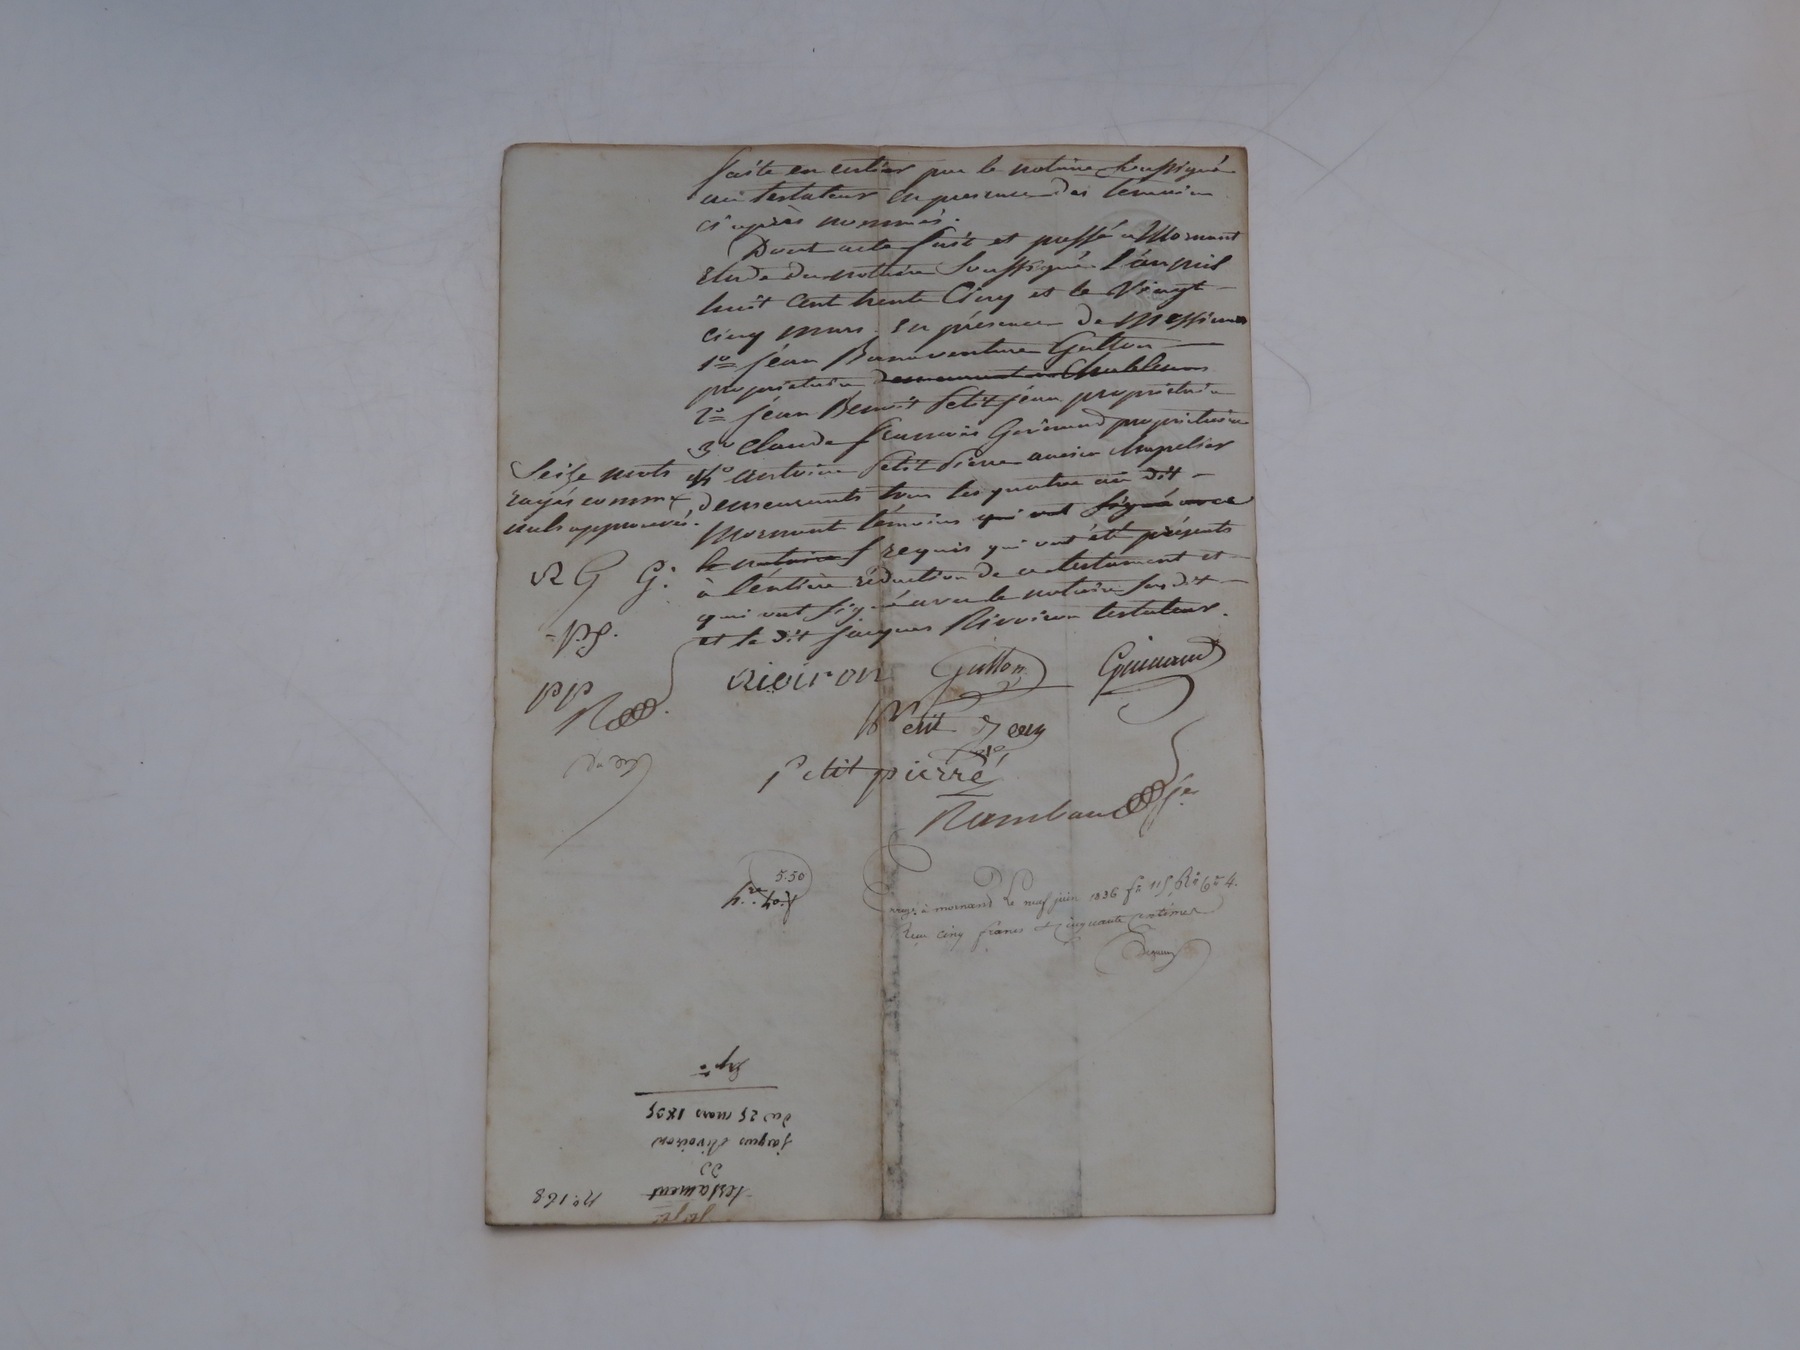 faite en entier par le notaire soussigné
au testateur en presence des temoins
ci après nommés.
Dont acte fait et passé a Mornant
Etude du notaire soussigné l'an mil
huit cent trente cinq et le vingt
cinq mars. en présence de Messieurs
1º jean Bonaventure Gutton
propriétaire
2º jean Benoit Petit jean propriétaire
3º Claude francois Guinand propriétaire
4º Antoine Petit Pierre ancien chapelier
demeurants tous les quatre au dit
Mornant témoins qui ont signé avec
le notaire requis qui ont été présents
à l'éntière rédaction de ce testament et
qui ont signé avec le notaire susdit
et le dit jacques Rivoiron testateur.
Seize mots
rayés comme
nuls approuvés.
RG G:
P.J.
pp
R
Rivoiron Gutton Guinand
Petit Jean
Petit pierre
Rambaud
5.50
à mornant le neuf juin 1836 fº 115 Rº Cº 4.
Reçu cinq francs et cinquante centimes
Nº 168
testament
de
jacques Rivoiron
du 25 mars 1835